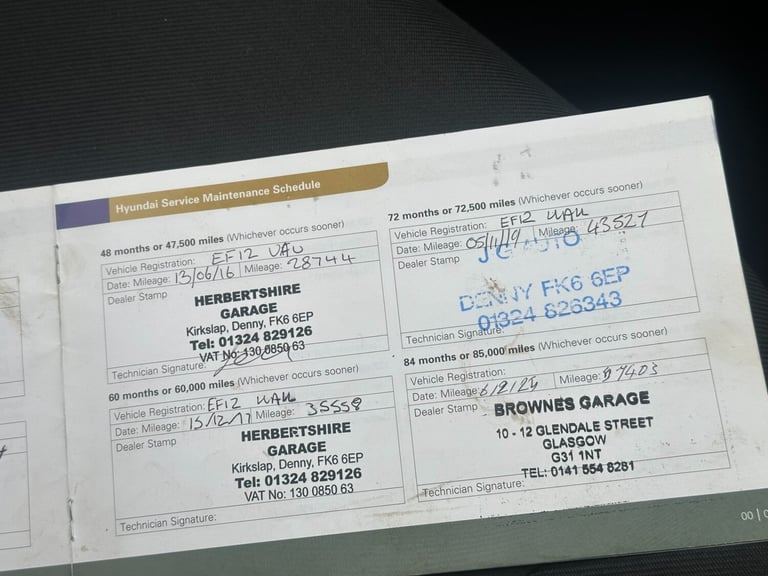 Hyundai Service Maintenance Schedule
48 months or 47,500 miles (Whichever occurs sooner)
Vehicle Registration: EF12 UAU
Date: Mileage: 13/06/16 Mileage: 28744
Dealer Stamp
HERBERTSHIRE
GARAGE
Kirkslap, Denny, FK6 6EP
Tel: 01324 829126
VAT No: 130 0850 63
Technician Signature:
60 months or 60,000 miles (Whichever occurs sooner)
Vehicle Registration: EF12 UAU
Date: Mileage: 15/12/17 Mileage: 35558
Dealer Stamp
HERBERTSHIRE
GARAGE
Kirkslap, Denny, FK6 6EP
Tel: 01324 829126
VAT No: 130 0850 63
Technician Signature:
72 months or 72,500 miles (Whichever occurs sooner)
Vehicle Registration: EF12 UAU
Date: Mileage: 05/11/19 Mileage: 43527
Dealer Stamp
JG AUTO
DENNY FK6 6EP
01324 826343
Technician Signature:
84 months or 85,000 miles (Whichever occurs sooner)
Vehicle Registration:
Date: Mileage: 6/2/24 Mileage:
Dealer Stamp
BROWNES GARAGE
10 - 12 GLENDALE STREET
GLASGOW
G31 1NT
TEL: 0141 554 8281
Technician Signature:
00 |